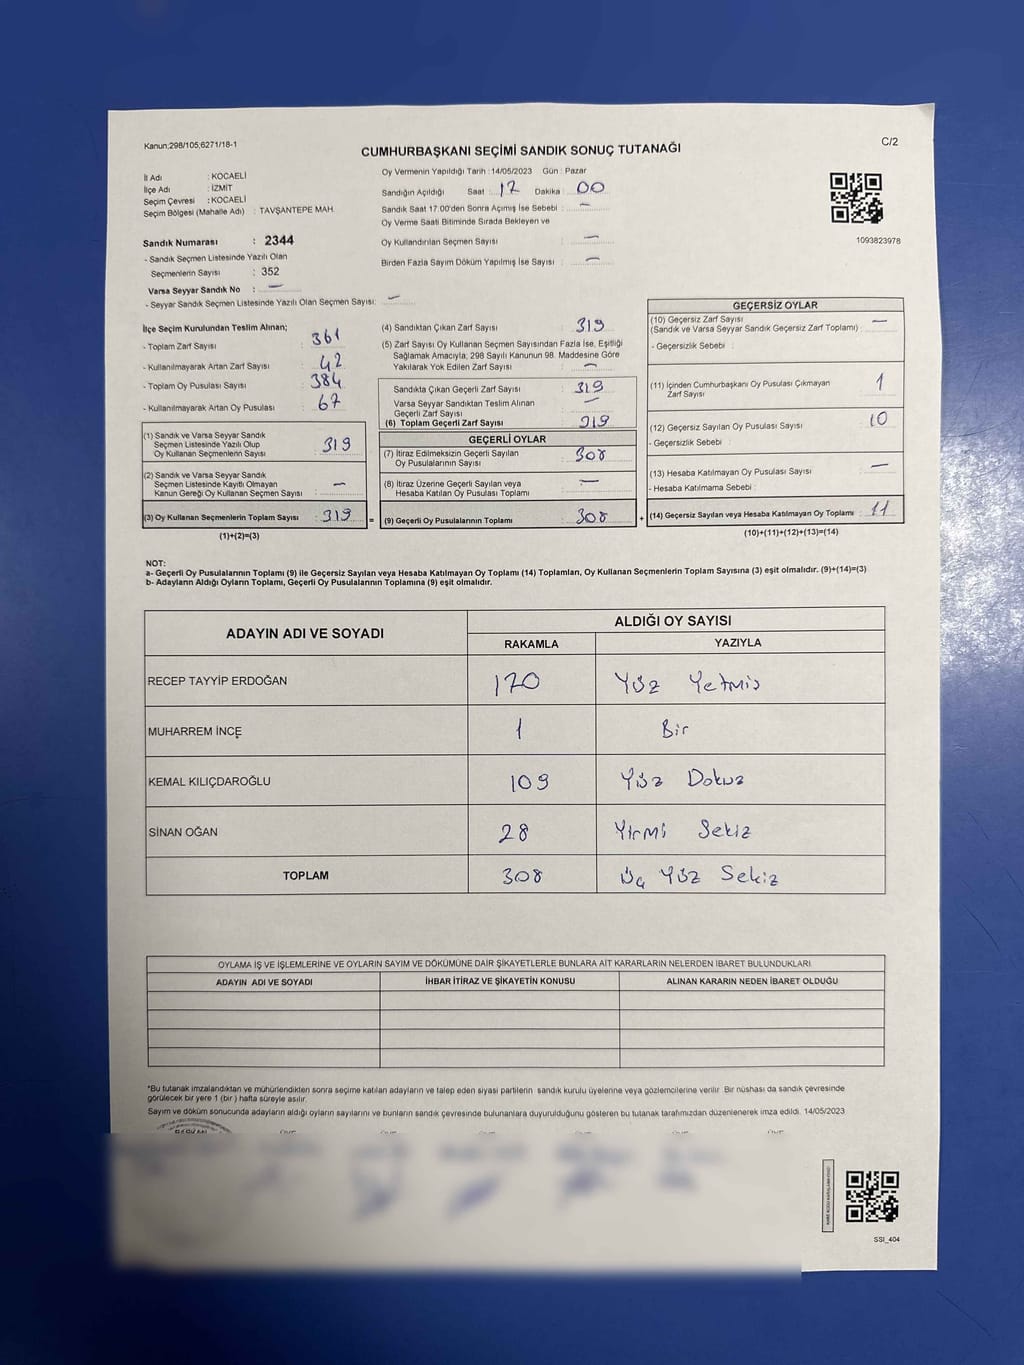 Kanun;298/105;6271/18-1
C/2
CUMHURBAŞKANI SEÇİMİ SANDIK SONUÇ TUTANAĞI
İl Adı : KOCAELİ
İlçe Adı : İZMİT
Seçim Çevresi : KOCAELİ
Seçim Bölgesi (Mahalle Adı) : TAVŞANTEPE MAH.
Sandık Numarası : 2344
- Sandık Seçmen Listesinde Yazılı Olan
Seçmenlerin Sayısı : 352
Varsa Seyyar Sandık No : —
- Seyyar Sandık Seçmen Listesinde Yazılı Olan Seçmen Sayısı: —
Oy Vermenin Yapıldığı Tarih : 14/05/2023 Gün : Pazar
Sandığın Açıldığı Saat : 17 Dakika : 00
Sandık Saat 17.00'den Sonra Açmış İse Sebebi : —
Oy Verme Saati Bitiminde Sırada Bekleyen ve
Oy Kullandırılan Seçmen Sayısı : —
Birden Fazla Sayım Döküm Yapılmış İse Sayısı : —
1093823978
İlçe Seçim Kurulundan Teslim Alınan;
- Toplam Zarf Sayısı : 361
- Kullanılmayarak Artan Zarf Sayısı : 42
- Toplam Oy Pusulası Sayısı : 384
- Kullanılmayarak Artan Oy Pusulası : 67
(1) Sandık ve Varsa Seyyar Sandık
Seçmen Listesinde Yazılı Olup
Oy Kullanan Seçmenlerin Sayısı : 319
(2) Sandık ve Varsa Seyyar Sandık
Seçmen Listesinde Kayıtlı Olmayan
Kanun Gereği Oy Kullanan Seçmen Sayısı : —
(3) Oy Kullanan Seçmenlerin Toplam Sayısı : 319
(1)+(2)=(3)
(4) Sandıktan Çıkan Zarf Sayısı : 319
(5) Zarf Sayısı Oy Kullanan Seçmen Sayısından Fazla İse, Eşitliği
Sağlamak Amacıyla; 298 Sayılı Kanunun 98. Maddesine Göre
Yakılarak Yok Edilen Zarf Sayısı : —
Sandıkta Çıkan Geçerli Zarf Sayısı : 319
Varsa Seyyar Sandıktan Teslim Alınan
Geçerli Zarf Sayısı : —
(6) Toplam Geçerli Zarf Sayısı : 319
GEÇERLİ OYLAR
(7) İtiraz Edilmeksizin Geçerli Sayılan
Oy Pusulalarının Sayısı : 308
(8) İtiraz Üzerine Geçerli Sayılan veya
Hesaba Katılan Oy Pusulası Toplamı : —
= (9) Geçerli Oy Pusulalarının Toplamı : 308
GEÇERSİZ OYLAR
(10) Geçersiz Zarf Sayısı : —
(Sandık ve Varsa Seyyar Sandık Geçersiz Zarf Toplamı)
- Geçersizlik Sebebi :
(11) İçinden Cumhurbaşkanı Oy Pusulası Çıkmayan
Zarf Sayısı : 1
(12) Geçersiz Sayılan Oy Pusulası Sayısı : 10
- Geçersizlik Sebebi :
(13) Hesaba Katılmayan Oy Pusulası Sayısı : —
- Hesaba Katılmama Sebebi :
+ (14) Geçersiz Sayılan veya Hesaba Katılmayan Oy Toplamı : 11
(10)+(11)+(12)+(13)=(14)
NOT:
a- Geçerli Oy Pusulalarının Toplamı (9) ile Geçersiz Sayılan veya Hesaba Katılmayan Oy Toplamı (14) Toplamları, Oy Kullanan Seçmenlerin Toplam Sayısına (3) eşit olmalıdır. (9)+(14)=(3)
b- Adayların Aldığı Oyların Toplamı, Geçerli Oy Pusulalarının Toplamına (9) eşit olmalıdır.
ADAYIN ADI VE SOYADI ALDIĞI OY SAYISI
RAKAMLA YAZIYLA
RECEP TAYYİP ERDOĞAN 170 Yüz Yetmiş
MUHARREM İNCE 1 Bir
KEMAL KILIÇDAROĞLU 109 Yüz Dokuz
SİNAN OĞAN 28 Yirmi Sekiz
TOPLAM 308 Üç Yüz Sekiz
OYLAMA İŞ VE İŞLEMLERİNE VE OYLARIN SAYIM VE DÖKÜMÜNE DAİR ŞİKAYETLERLE BUNLARA AİT KARARLARIN NELERDEN İBARET BULUNDUKLARI
ADAYIN ADI VE SOYADI İHBAR İTİRAZ VE ŞİKAYETİN KONUSU ALINAN KARARIN NEDEN İBARET OLDUĞU
*Bu tutanak imzalandıktan ve mühürlendikten sonra seçime katılan adayların ve talep eden siyasi partilerin sandık kurulu üyelerine veya gözlemcilerine verilir. Bir nüshası da sandık çevresinde
görülecek bir yere 1 (bir) hafta süreyle asılır.
Sayım ve döküm sonucunda adayların aldığı oyların sayılarını ve bunların sandık çevresinde bulunanlara duyurulduğunu gösteren bu tutanak tarafımızdan düzenlenerek imza edildi. 14/05/2023
SSI_404